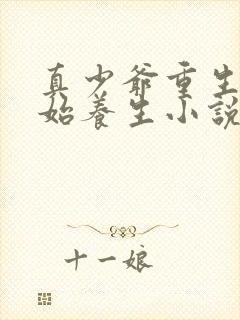 真少爷重生
始养生小說
十一娘